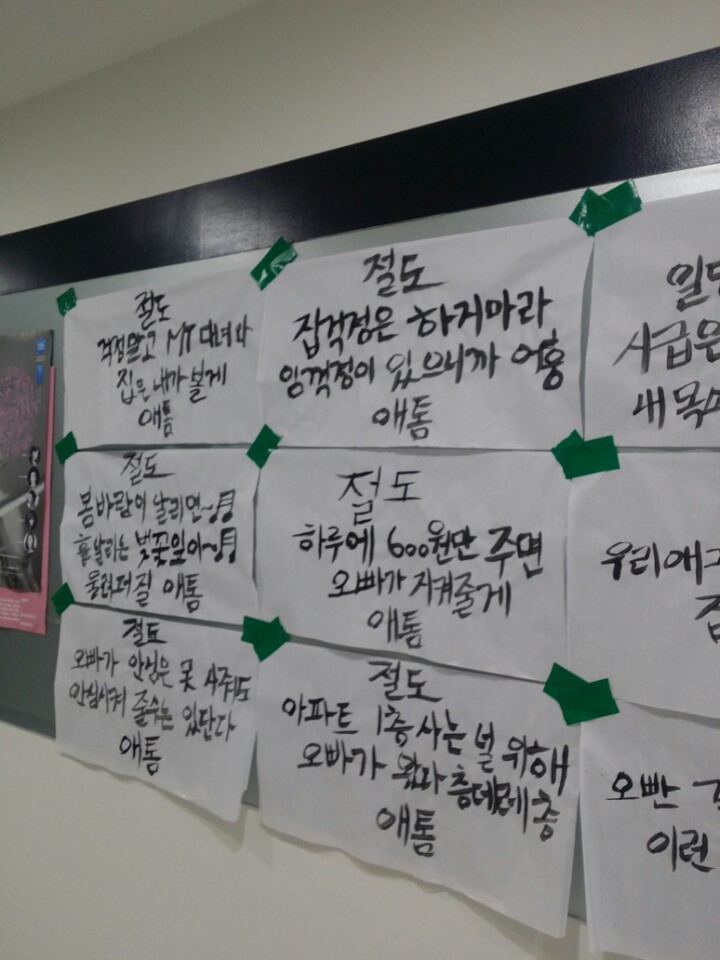 절도
걱정말고 MT 다녀와
집은 내가 볼게
애톰
절도
잡걱정은 하지마라
임꺽정이 있으니까 어흥
애톰
시급은
절도
봄바람이 날리면~
흩날리는 벚꽃잎이~
울려퍼질 애톰
절도
하루에 600원만 주면
오빠가 지켜줄게
애톰
절도
오빠가 안성은 못 사줘도
안심시켜 줄수는 있단다
애톰
절도
아파트 1층 사는 널 위해
오빠가 왔다 층데레 층
애톰
오빤
이런